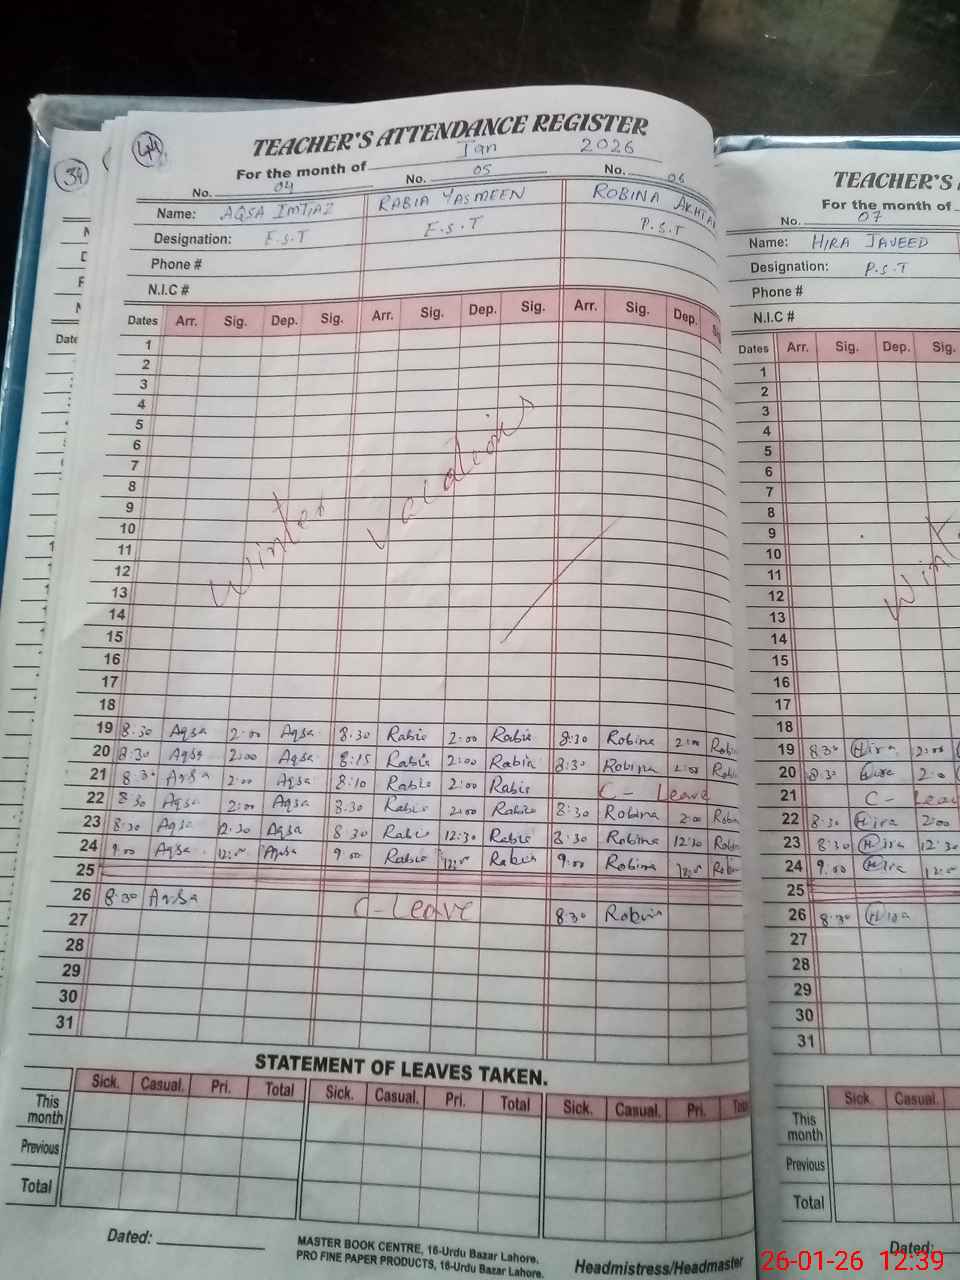 44
TEACHER'S ATTENDANCE REGISTER
For the month of Jan 2026
No. 04 No. 05 No. 06
Name: AQSA IMTIAZ RABIA YASMEEN ROBINA AKHTAR
Designation: E.S.T E.S.T P.S.T
Phone #
N.I.C #
Dates Arr. Sig. Dep. Sig. Arr. Sig. Dep. Sig. Arr. Sig. Dep.
1
2
3
4
5
6
7
8
9
10
11
12
13
14
15
16
17
18
Winter
19 8:30 Aqsa 2:00 Aqsa 8:30 Rabia 2:00 Rabia 8:30 Robina 2:00 Robi
20 8:30 Aqsa 2:00 Aqsa 8:15 Rabia 2:00 Rabia 8:30 Robina 2:00 Rob
21 8:30 Aqsa 2:00 Aqsa 8:10 Rabia 2:00 Rabia C - Leave
22 8:30 Aqsa 2:00 Aqsa 8:30 Rabia 2:00 Rabia 8:30 Robina 2:00 Robin
23 8:30 Aqsa 12:30 Aqsa 8:30 Rabia 12:30 Rabia 8:30 Robina 12:30 Rob
24 9:00 Aqsa 12:00 Aqsa 9:00 Rabia 12:00 Rabia 9:00 Robina 12:00 Rob
25
26 8:30 Aqsa C - Leave 8:30 Robina
27
28
29
30
31
STATEMENT OF LEAVES TAKEN.
Sick. Casual. Pri. Total Sick. Casual. Pri. Total Sick. Casual. Pri.
This month
Previous
Total
Dated:
MASTER BOOK CENTRE, 16-Urdu Bazar Lahore.
PRO FINE PAPER PRODUCTS, 16-Urdu Bazar Lahore.
Headmistress/Headmaster
34
Date
TEACHER'S
For the month of
No. 07
Name: HIRA JAVEED
Designation: P.S.T
Phone #
N.I.C #
Dates Arr. Sig. Dep. Sig.
1
2
3
4
5
6
7
8
9
10
11
12
13
14
15
16
17
18
Wint
19 8:30 Hira 2:00
20 8:30 Hira 2:0
21 C - Leav
22 8:30 Hira 2:00
23 8:30 Hira 12:30
24 9:00 Hira 12:00
25
26 8:30 Hira
27
28
29
30
31
Sick. Casual.
This month
Previous
Total
Dated:
26-01-26 12:39